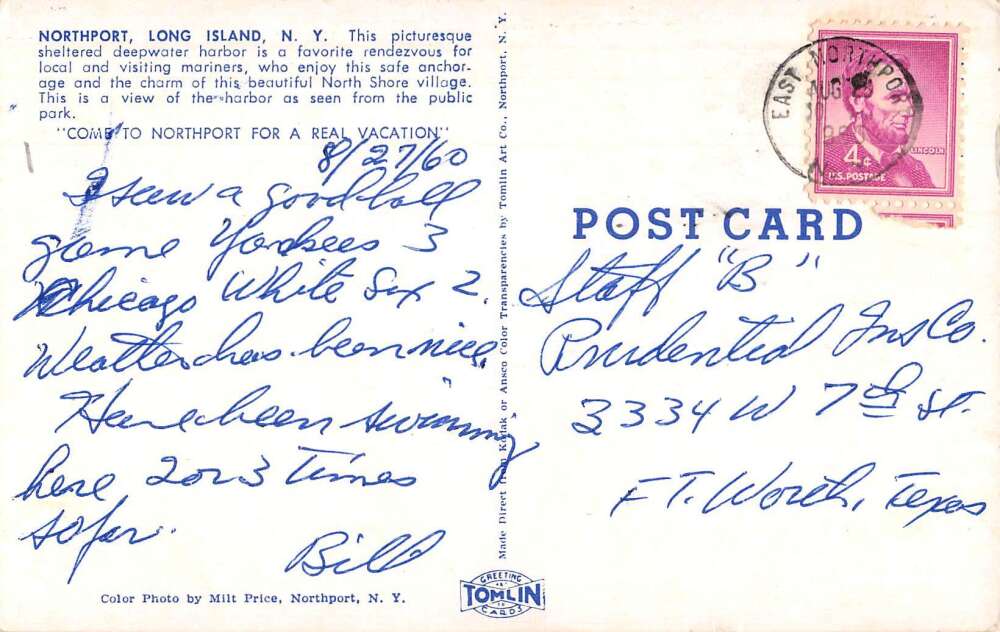 NORTHPORT, LONG ISLAND, N. Y. This picturesque
sheltered deepwater harbor is a favorite rendezvous for
local and visiting mariners, who enjoy this safe anchor-
age and the charm of this beautiful North Shore village.
This is a view of the harbor as seen from the public
park.
"COME TO NORTHPORT FOR A REAL VACATION"
8/27/60
I saw a good ball
game Yankees 3
Chicago White Sox 2.
Weather has been nice.
Have been swimming
here 2 or 3 times
so far.
Bill
Color Photo by Milt Price, Northport, N. Y.
Made Direct from Kodak or Ansco Color Transparencies by Tomlin Art Co., Northport, N. Y.
GREETING
TOMLIN
CARDS
EAST NORTHPORT
AUG
N.
LINCOLN
4¢
U.S. POSTAGE
POST CARD
Staff "B"
Prudential Ins Co.
3334 W 7th St.
FT. Worth, Texas